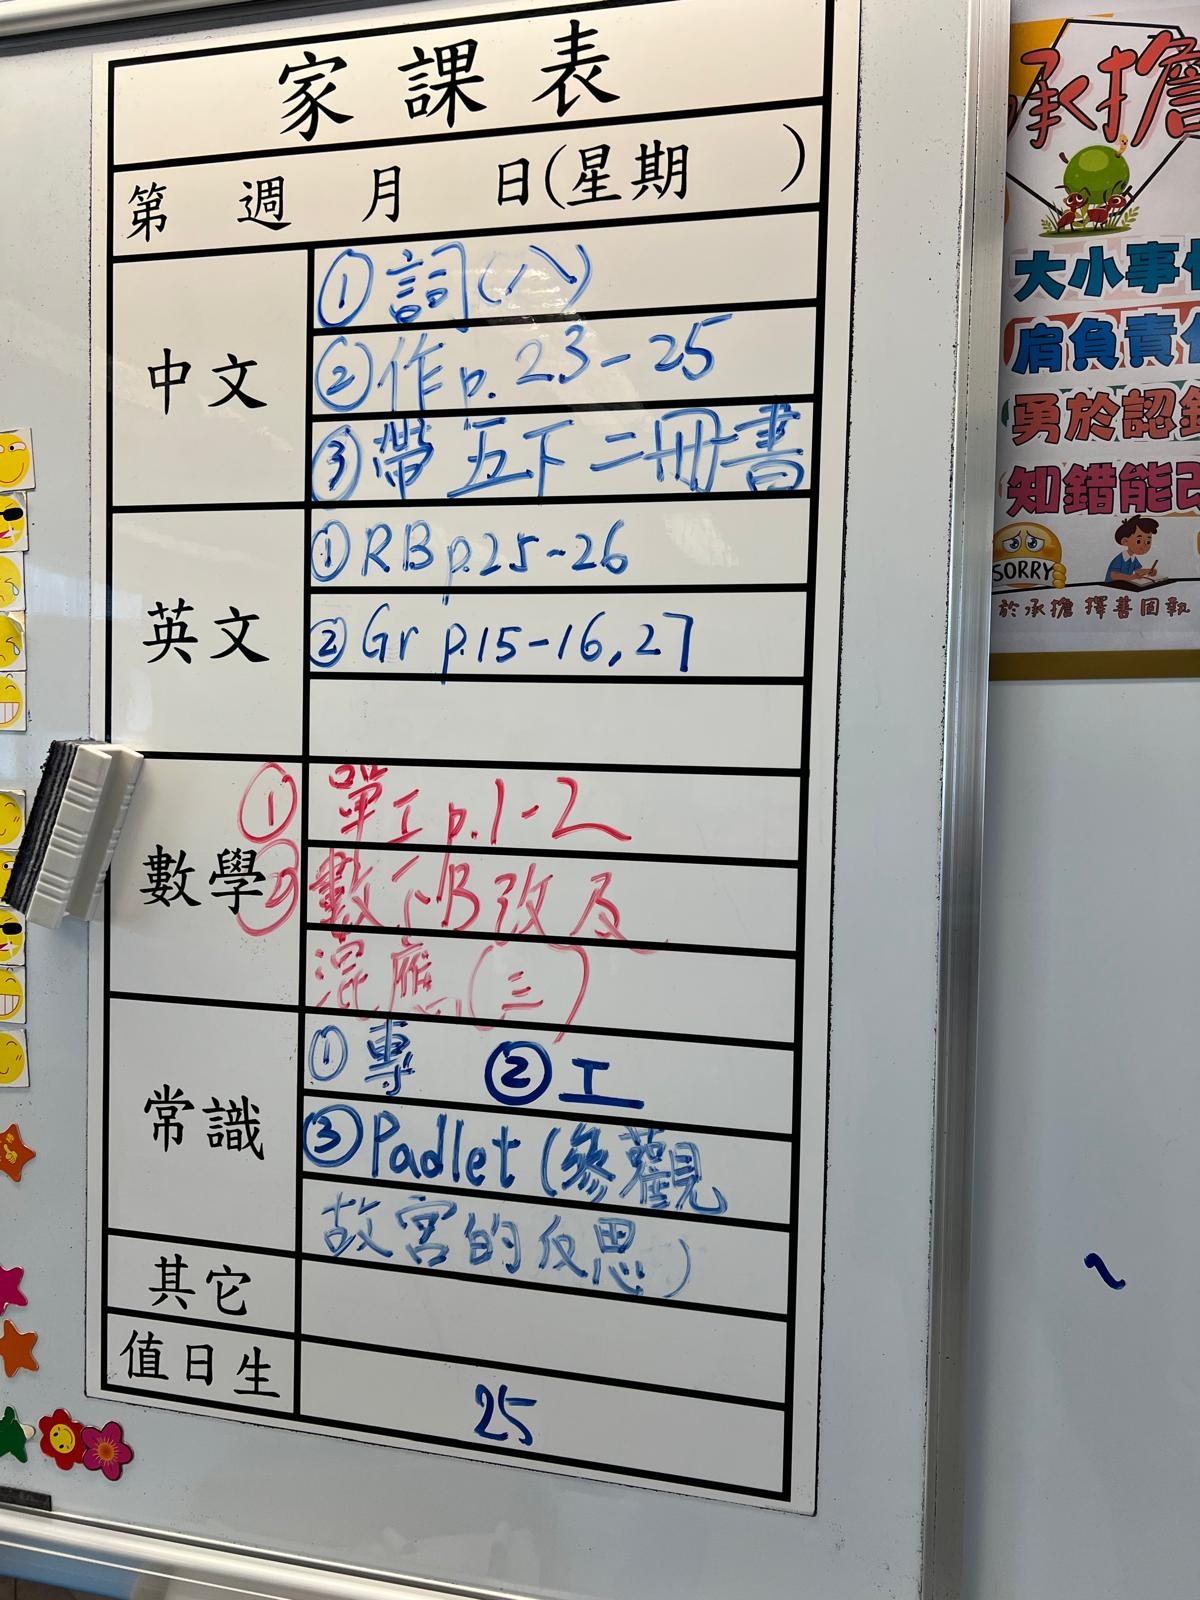 家課表
第 週 月 日(星期 )
中文
①詞(八)
②作p. 23-25
③帶五下二冊書
英文
①RB p.25-26
②Gr p.15-16,27
數學
①單工p.1-2
②數下B改及
混應(三)
常識
①專 ②工
③Padlet(參觀
故宮的反思)
其它
值日生
25
承擔
大小事
肩負責
勇於認
知錯能改
SORRY
於承擔 擇善固執